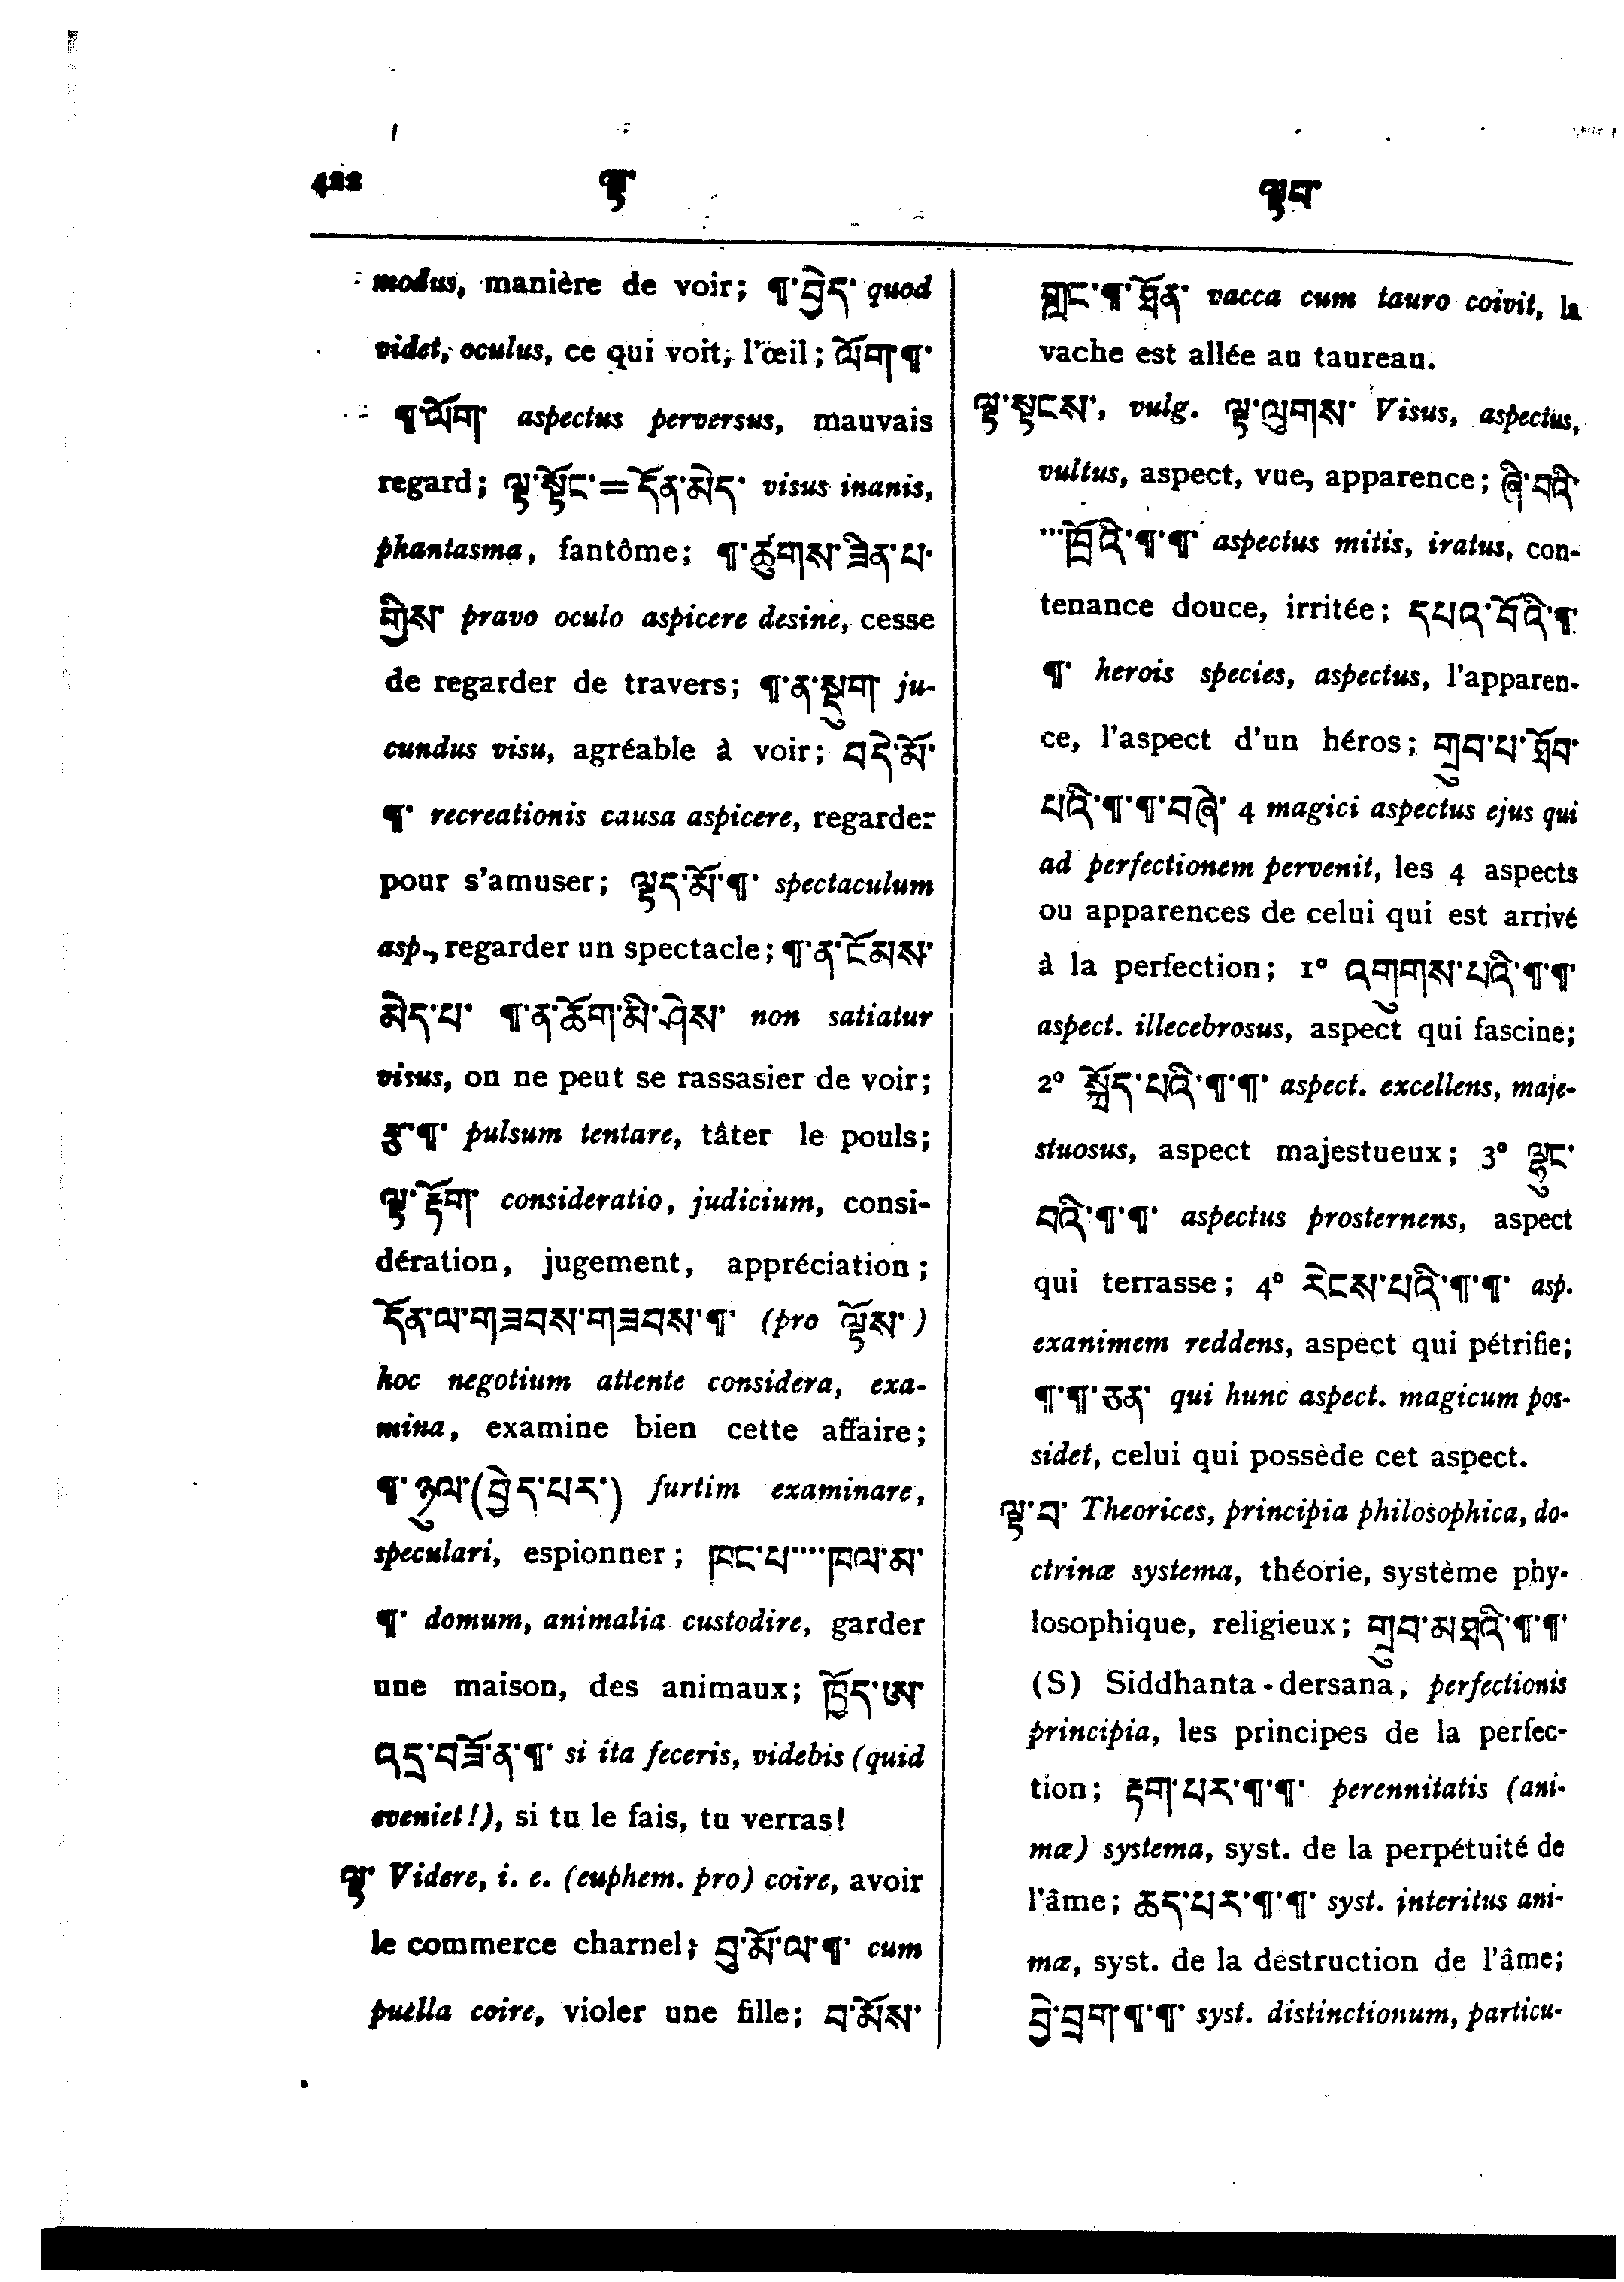 422 ལྟ་ ལྟབ་
modus, manière de voir; ¶་བྱེད་ quod
videt, oculus, ce qui voit, l'œil; ལོག་¶་
¶་ལོག་ aspectus perversus, mauvais
regard; ལྟ་སྟོང་=དོན་མེད་ visus inanis,
phantasma, fantôme; ¶་ཚུགས་ཟིན་པ་
གྱིས་ pravo oculo aspicere desine, cesse
de regarder de travers; ¶་ན་སྡུག་ ju-
cundus visu, agréable à voir; བདེ་མོ་
¶་ recreationis causa aspicere, regarder
pour s'amuser; ལྟད་མོ་¶་ spectaculum
asp., regarder un spectacle; ¶་ན་ངོམས་
མེད་པ་ ¶་ན་ཆོག་མི་ཤེས་ non satiatur
visus, on ne peut se rassasier de voir;
རྩ་¶་ pulsum tentare, tâter le pouls;
ལྟ་རྟོག་ consideratio, judicium, consi-
dération, jugement, appréciation;
དོན་ལ་གཟབས་གཟབས་¶་ (pro ལྟོས་)
hoc negotium attente considera, exa-
mina, examine bien cette affaire;
¶་ཉུལ་(བྱེད་པར་) furtim examinare,
speculari, espionner; ཁང་པ་····ཁལ་མ་
¶་ domum, animalia custodire, garder
une maison, des animaux; ཁྱོད་ཨ་
འདྲ་བཟོ་ན་¶་ si ita feceris, videbis (quid
eveniet!), si tu le fais, tu verras!
ལྟ་ Videre, i. e. (euphem. pro) coire, avoir
le commerce charnel; བུ་མོ་ལ་¶་ cum
puella coire, violer une fille; བ་མོས་
གླང་¶་ཐོན་ vacca cum tauro coivit, la
vache est allée au taureau.
ལྟ་སྟངས་, vulg. ལྟ་ལུགས་ Visus, aspectus,
vultus, aspect, vue, apparence; ཞི་བའི་
···ཁྲོའི་¶་¶་ aspectus mitis, iratus, con-
tenance douce, irritée; དཔའ་བོའི་¶་
¶་ herois species, aspectus, l'apparen-
ce, l'aspect d'un héros; གྲུབ་པ་ཐོབ་
པའི་¶་¶་བཞི་ 4 magici aspectus ejus qui
ad perfectionem pervenit, les 4 aspects
ou apparences de celui qui est arrivé
à la perfection; 1° འགུགས་པའི་¶་¶་
aspect. illecebrosus, aspect qui fascine;
2° སློད་པའི་¶་¶་ aspect. excellens, maje-
stuosus, aspect majestueux; 3° ལྷུང་
བའི་¶་¶་ aspectus prosternens, aspect
qui terrasse; 4° རེངས་པའི་¶་¶་ asp.
exanimem reddens, aspect qui pétrifie;
¶་¶་ཅན་ qui hunc aspect. magicum pos-
sidet, celui qui possède cet aspect.
ལྟ་བ་ Theorices, principia philosophica, do-
ctrinæ systema, théorie, système phy-
losophique, religieux; གྲུབ་མཐའི་¶་¶་
(S) Siddhanta-dersana, perfectionis
principia, les principes de la perfec-
tion; རྟག་པར་¶་¶་ perennitatis (ani-
mæ) systema, syst. de la perpétuité de
l'âme; ཆད་པར་¶་¶་ syst. interitus ani-
mæ, syst. de la destruction de l'âme;
བྱེ་བྲག་¶་¶་ syst. distinctionum, particu-